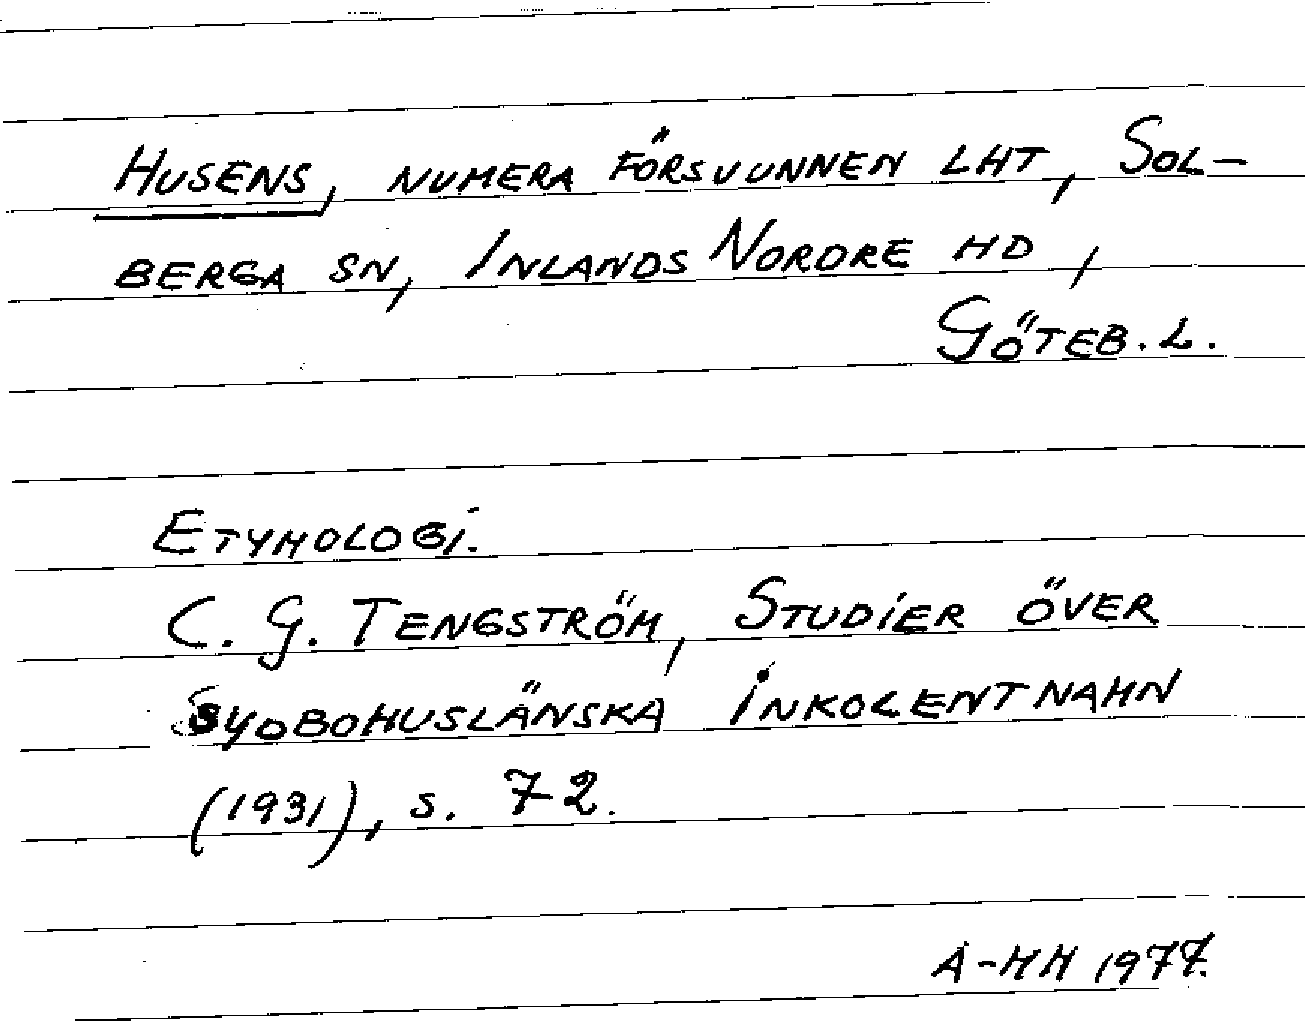 HUSENS, NUMERA FÖRSVUNNEN LHT, SOL-
BERGA SN, INLANDS NORDRE HD,
GÖTEB. L.
ETYMOLOGI.
C. G. TENGSTRÖM, STUDIER ÖVER
SYDBOHUSLÄNSKA INKOLENTNAMN
(1931), s. 72.
A-MM 1977.